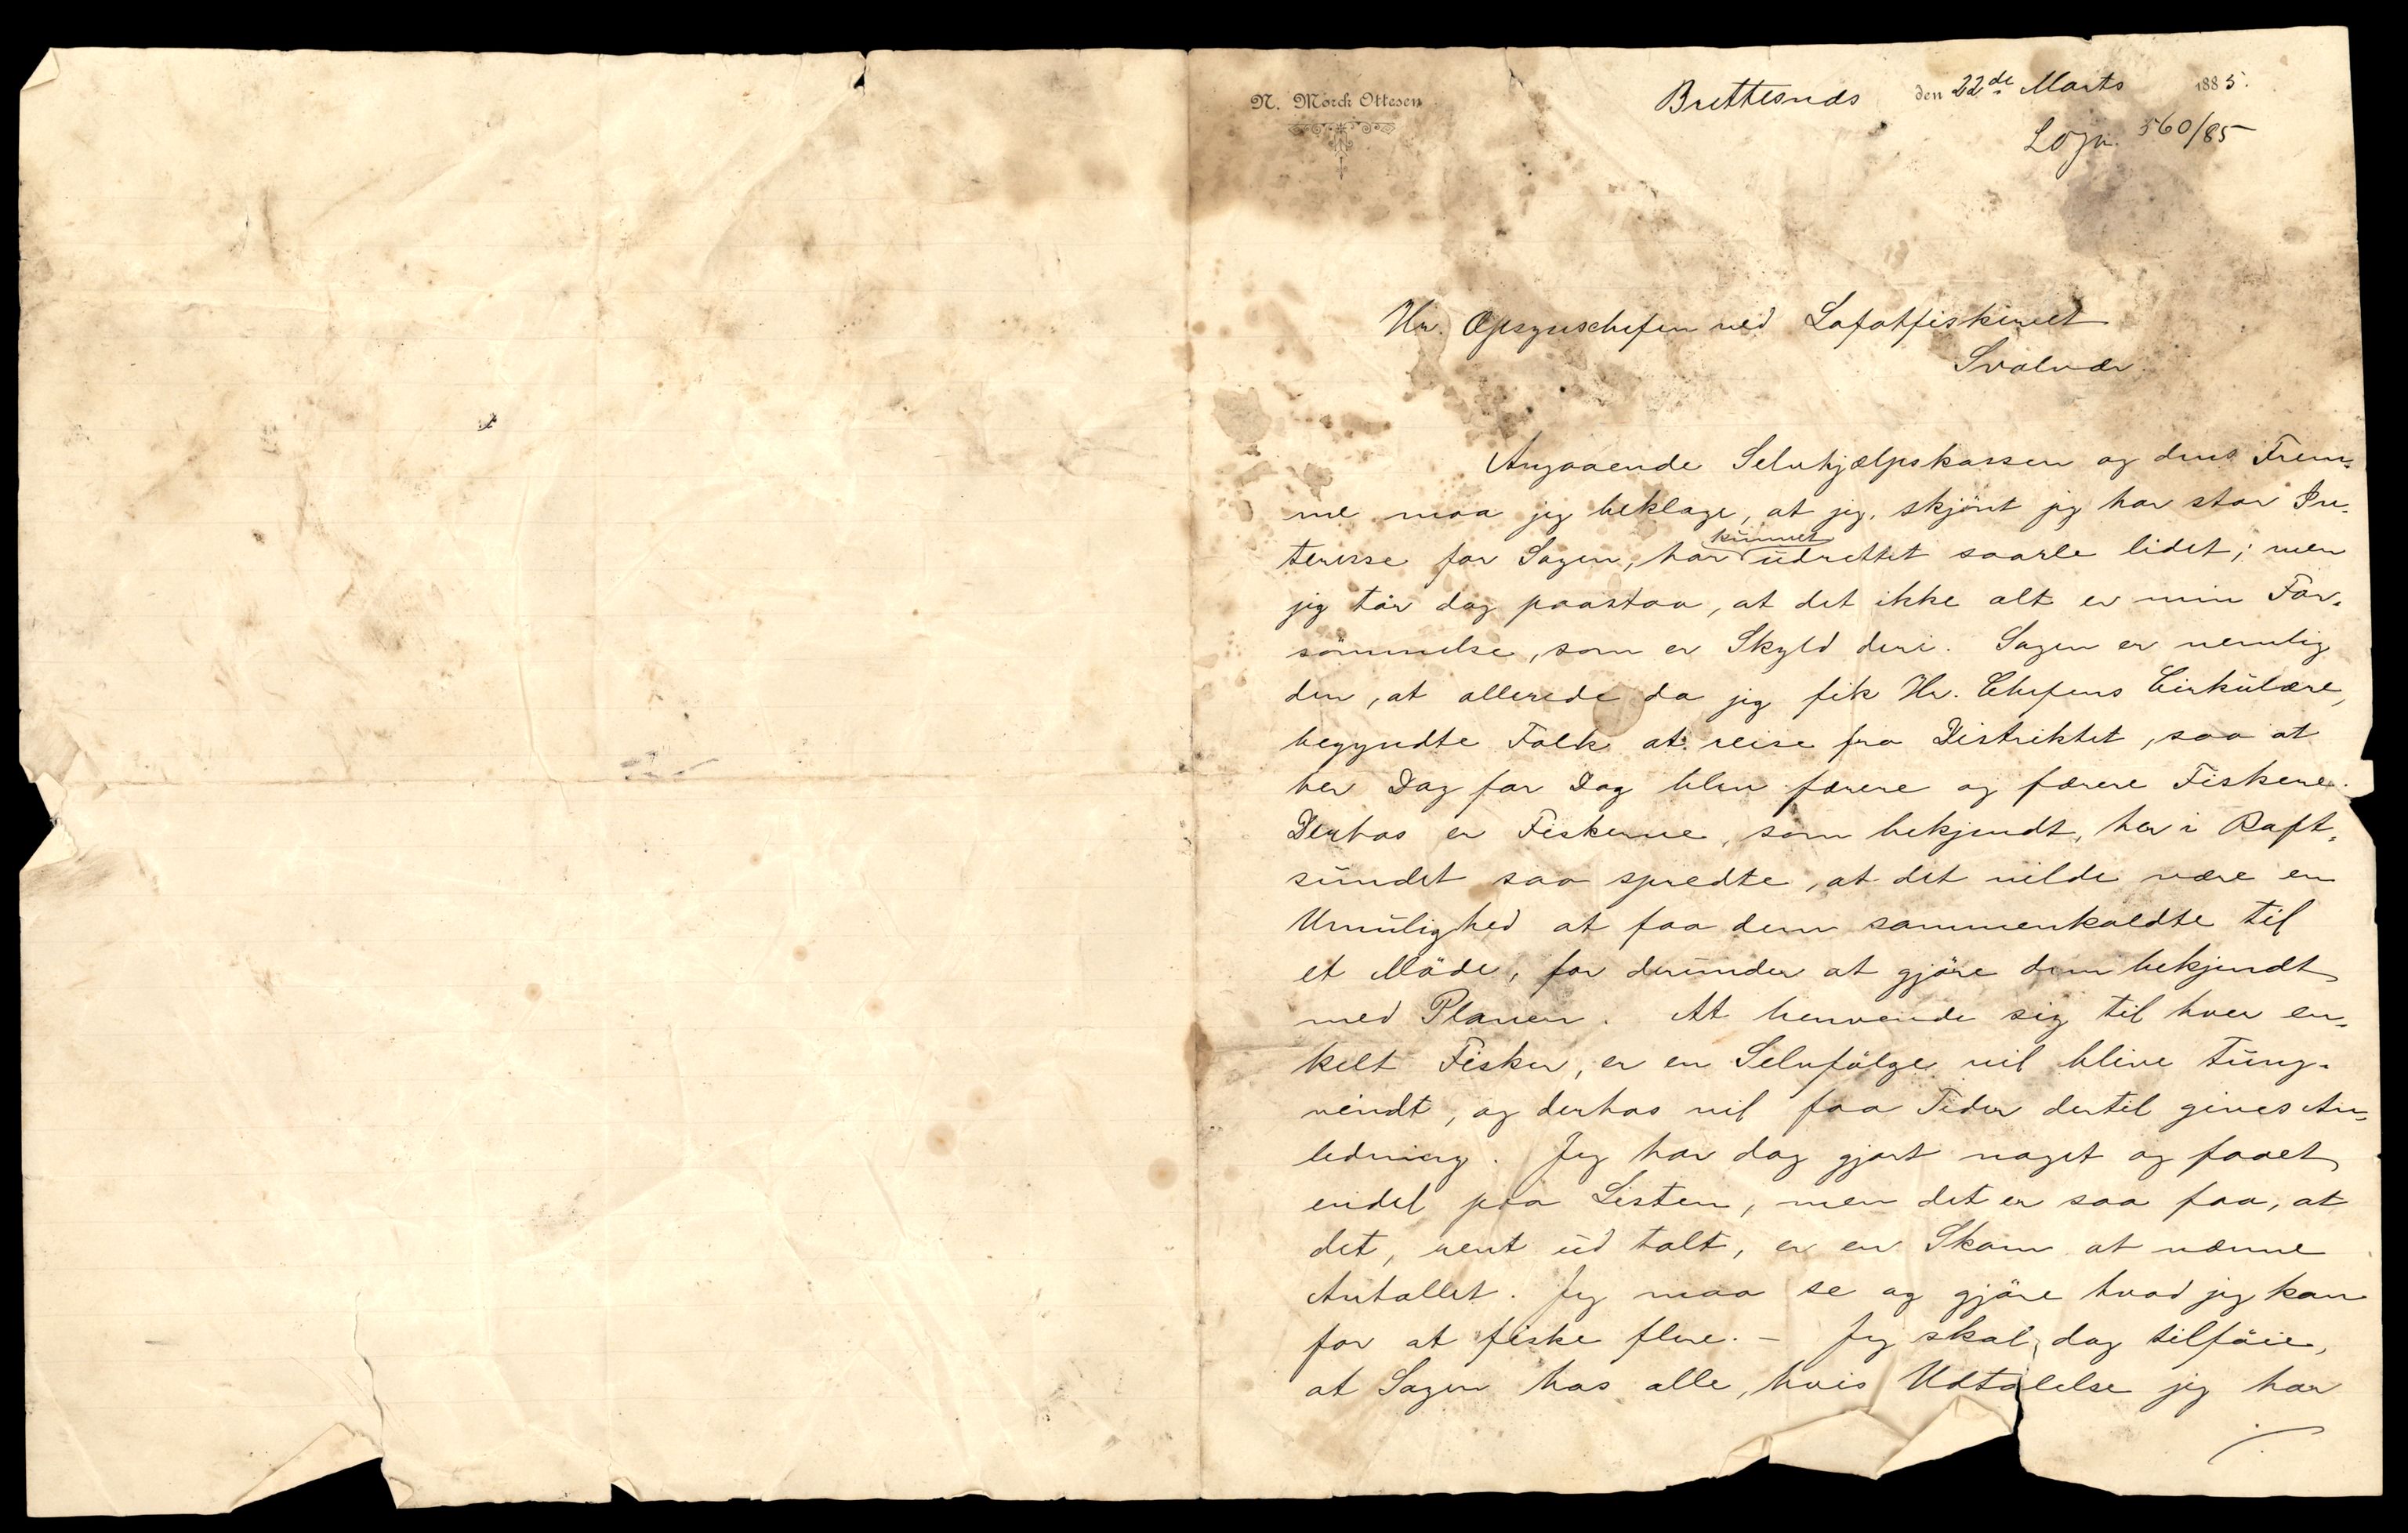 N. Morch Ottesen
Brettesnds den 22de Marts 1885.
LoJn. 560/85
Hr. Opsynschefen ved Lofotfiskeriet
Svolvær
Angaaende Selvhjælpskassen og dens Frem-
me maa jeg beklage, at jeg, skjönt jeg har stor In-
teresse for Sagen, har kunnet udrettet saare lidet; men
jeg tör dog paastaa, at det ikke alt er min For-
sömmelse, som er Skyld deri. Sagen er nemlig
den, at allerede da jeg fik Hr. Chefens Cirkulære,
begyndte Folk at reise fra Distriktet, saa at
her Dag for Dag blev færre og færre Fiskere.
Derhos er Fiskerne, som bekjendt, her i Raft-
sundet saa spredte, at det vilde være en
Umulighed at faa dem sammenkaldte til
et Möde, for derunder at gjöre dem bekjendt
med Planen. At henvende sig til hver en-
kelt Fisker, er en Selvfölge vil blive tung-
vindt, og derhos vil faa Tider dertil gives An-
ledning. Jeg har dog gjort noget og faaet
endel paa Listen, men det er saa faa, at
det, rent ud talt, er en Skam at nævne
Antallet. Jeg maa se og gjöre hvad jeg kan
for at fiske flere. – Jeg skal dog tilföie,
at Sagen hos alle, hvis Udtalelse jeg har
./.